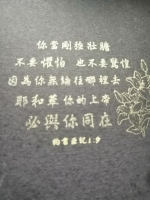 你當剛強壯膽
不要懼怕 也不要驚惶
因為你無論往哪裡去
耶和華你的上帝
必與你同在
約書亞記1:9